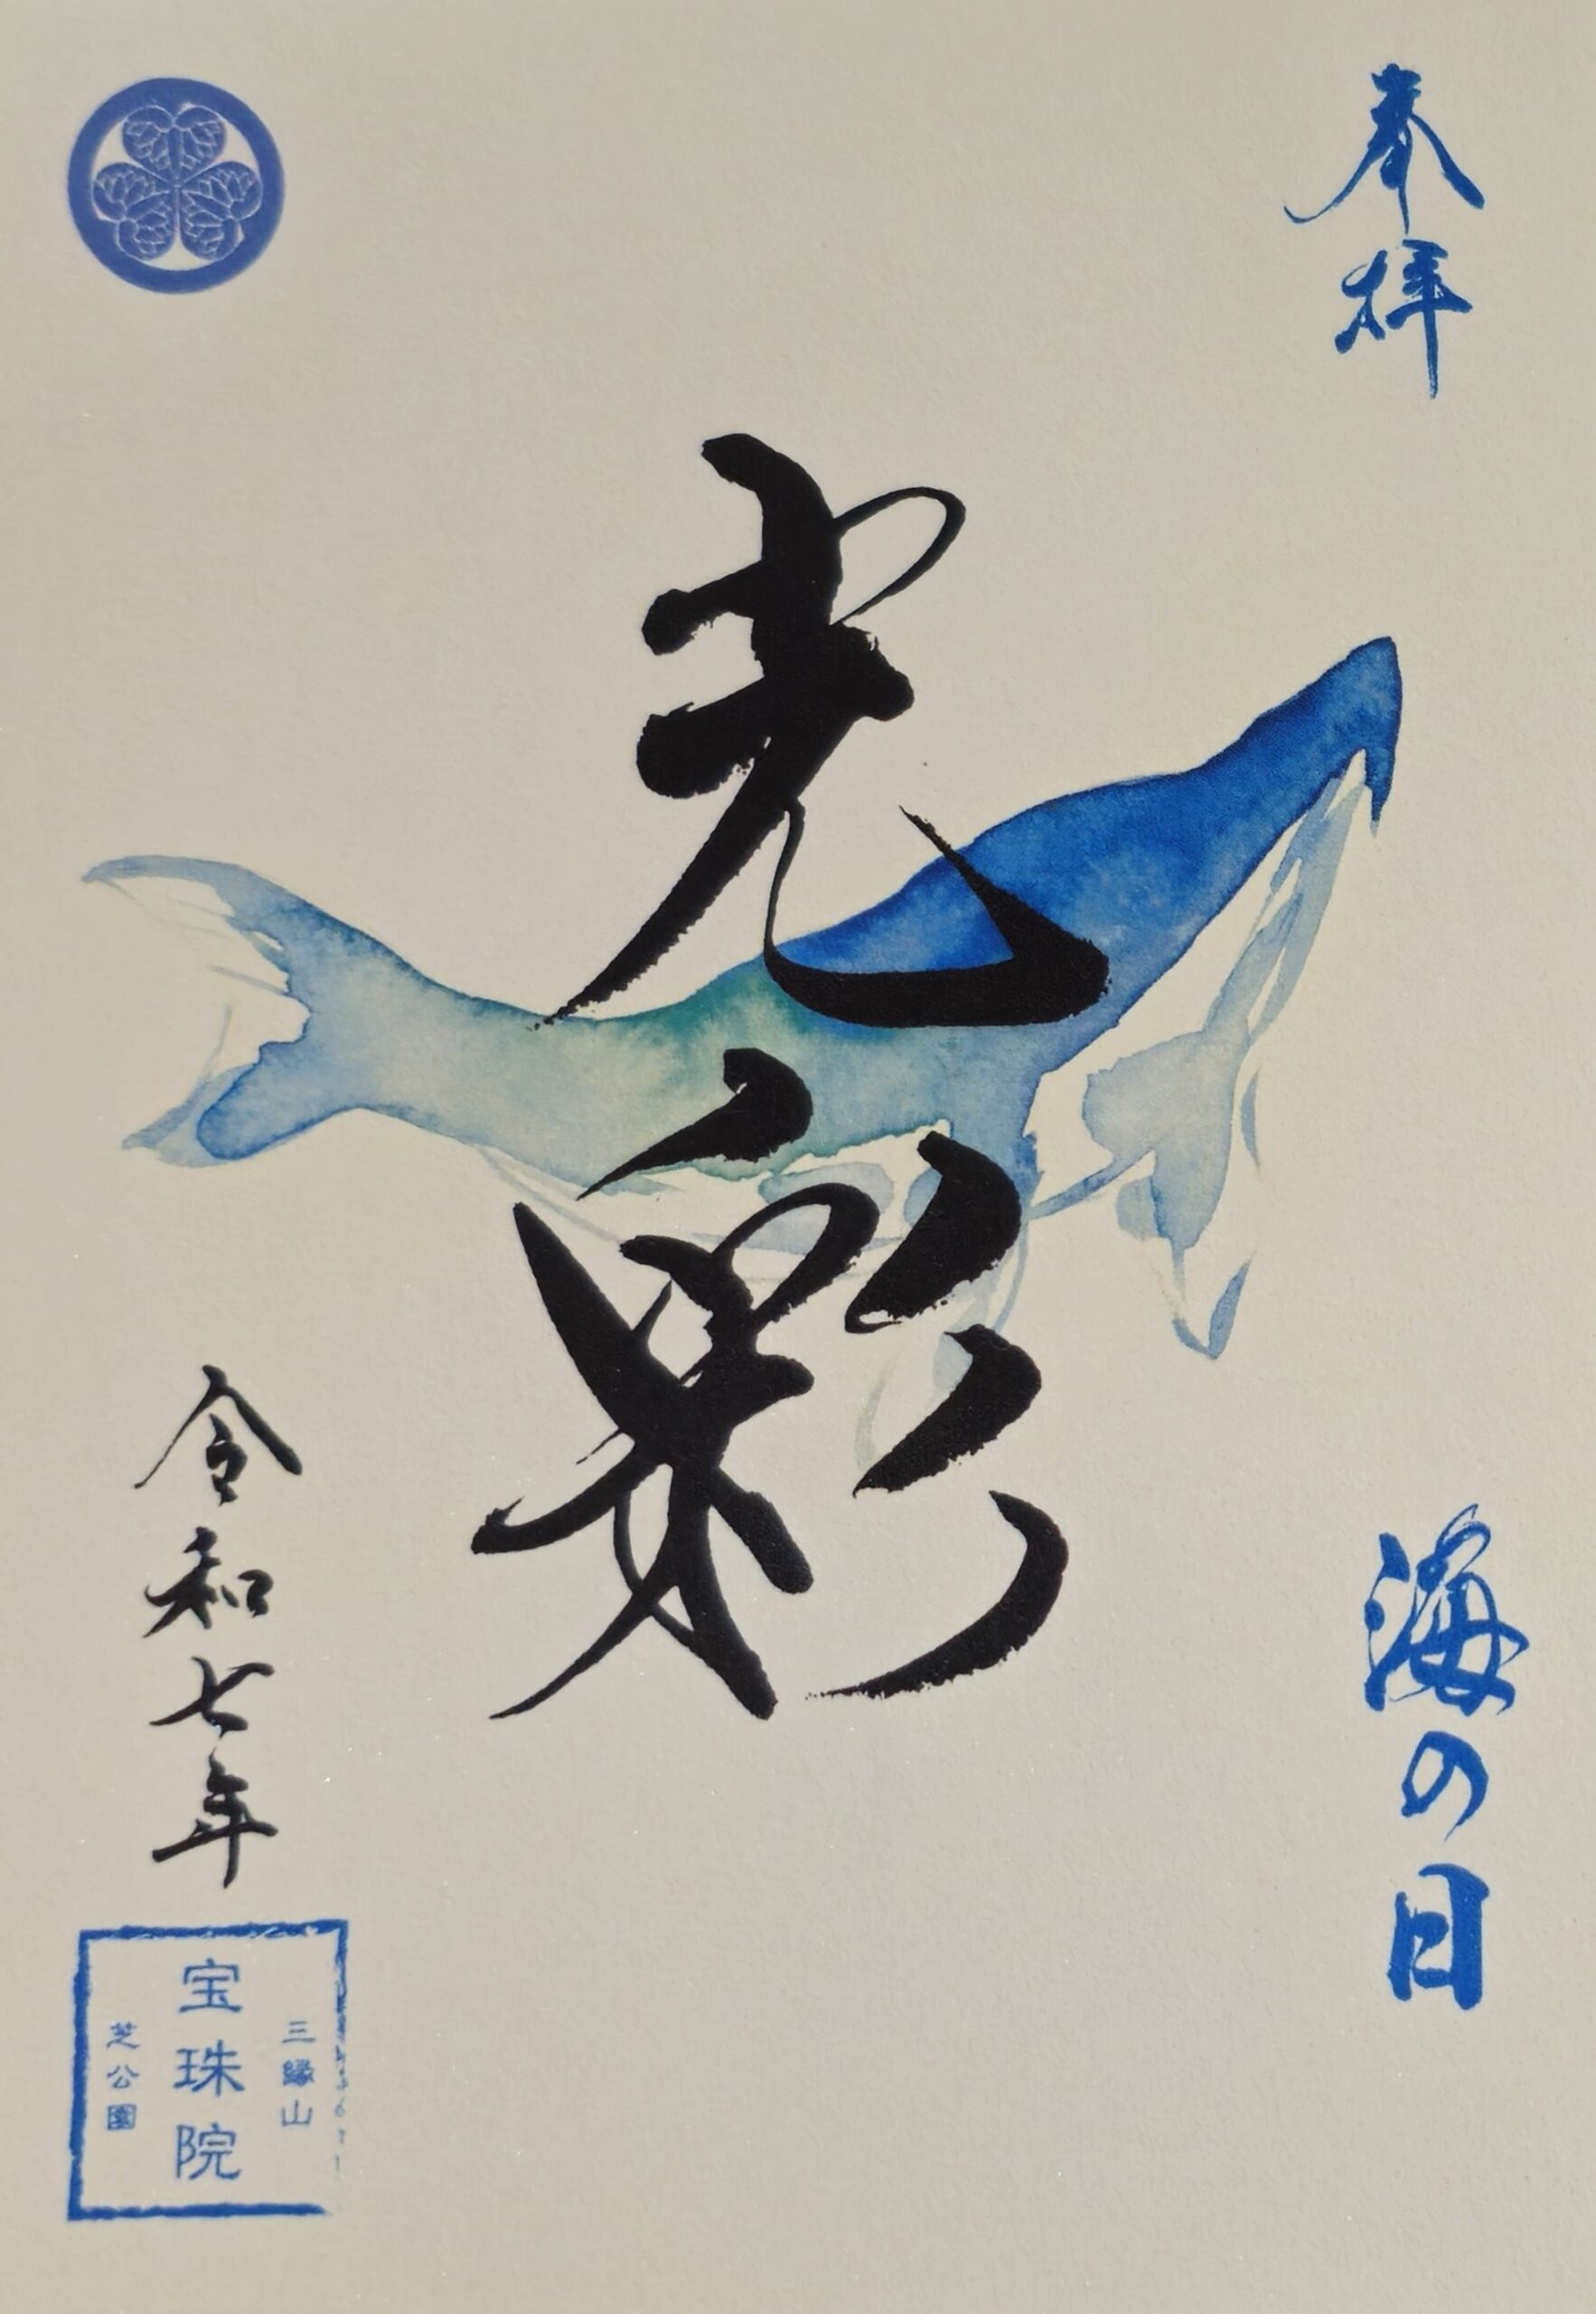 奉拝
海の日
光彩
令和七年
三縁山
宝珠院
芝公園